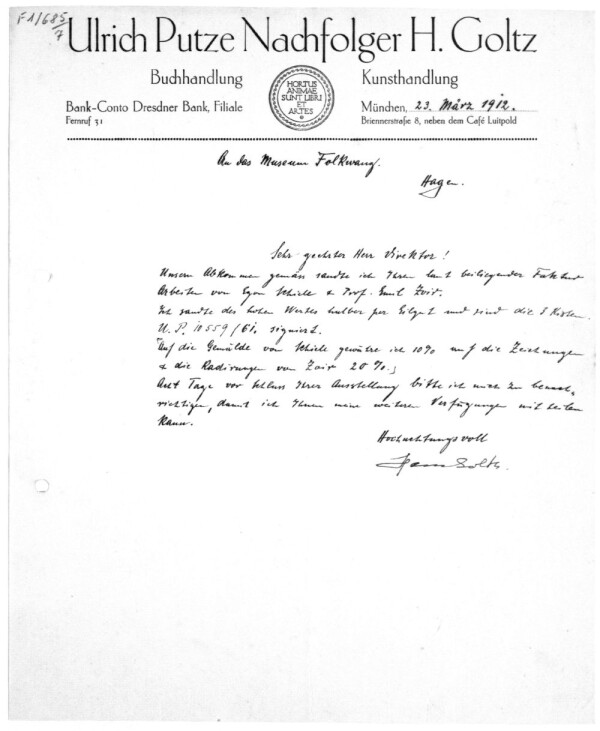 F1/685/7
Ulrich Putze Nachfolger H. Goltz
Buchhandlung
Kunsthandlung
HORTUS
ANIMAE
SUNT LIBRI
ET
ARTES
Bank-Conto Dresdner Bank, Filiale
Fernruf 31
München, 23. März 1912.
Briennerstraße 8, neben dem Café Luitpold
An das Museum Folkwang.
Hagen.
Sehr geehrter Herr Direktor!
Unserm Abkommen gemäss sandte ich Ihnen laut beiliegender Faktur
Arbeiten von Egon Schiele & Prof. Emil Zoir.
Ich sandte des hohen Wertes halber per Eilgut und sind die 5 Kisten
U. P. 10559/61, signiert.
Auf die Gemälde von Schiele gewähre ich 10% auf die Zeichnungen
& die Radierungen von Zoir 20%.
Acht Tage vor Schluss Ihrer Ausstellung bitte ich mich zu benach-
richtigen, damit ich Ihnen meine weiteren Verfügungen mitteilen
kann.
Hochachtungsvoll
Hans Goltz.